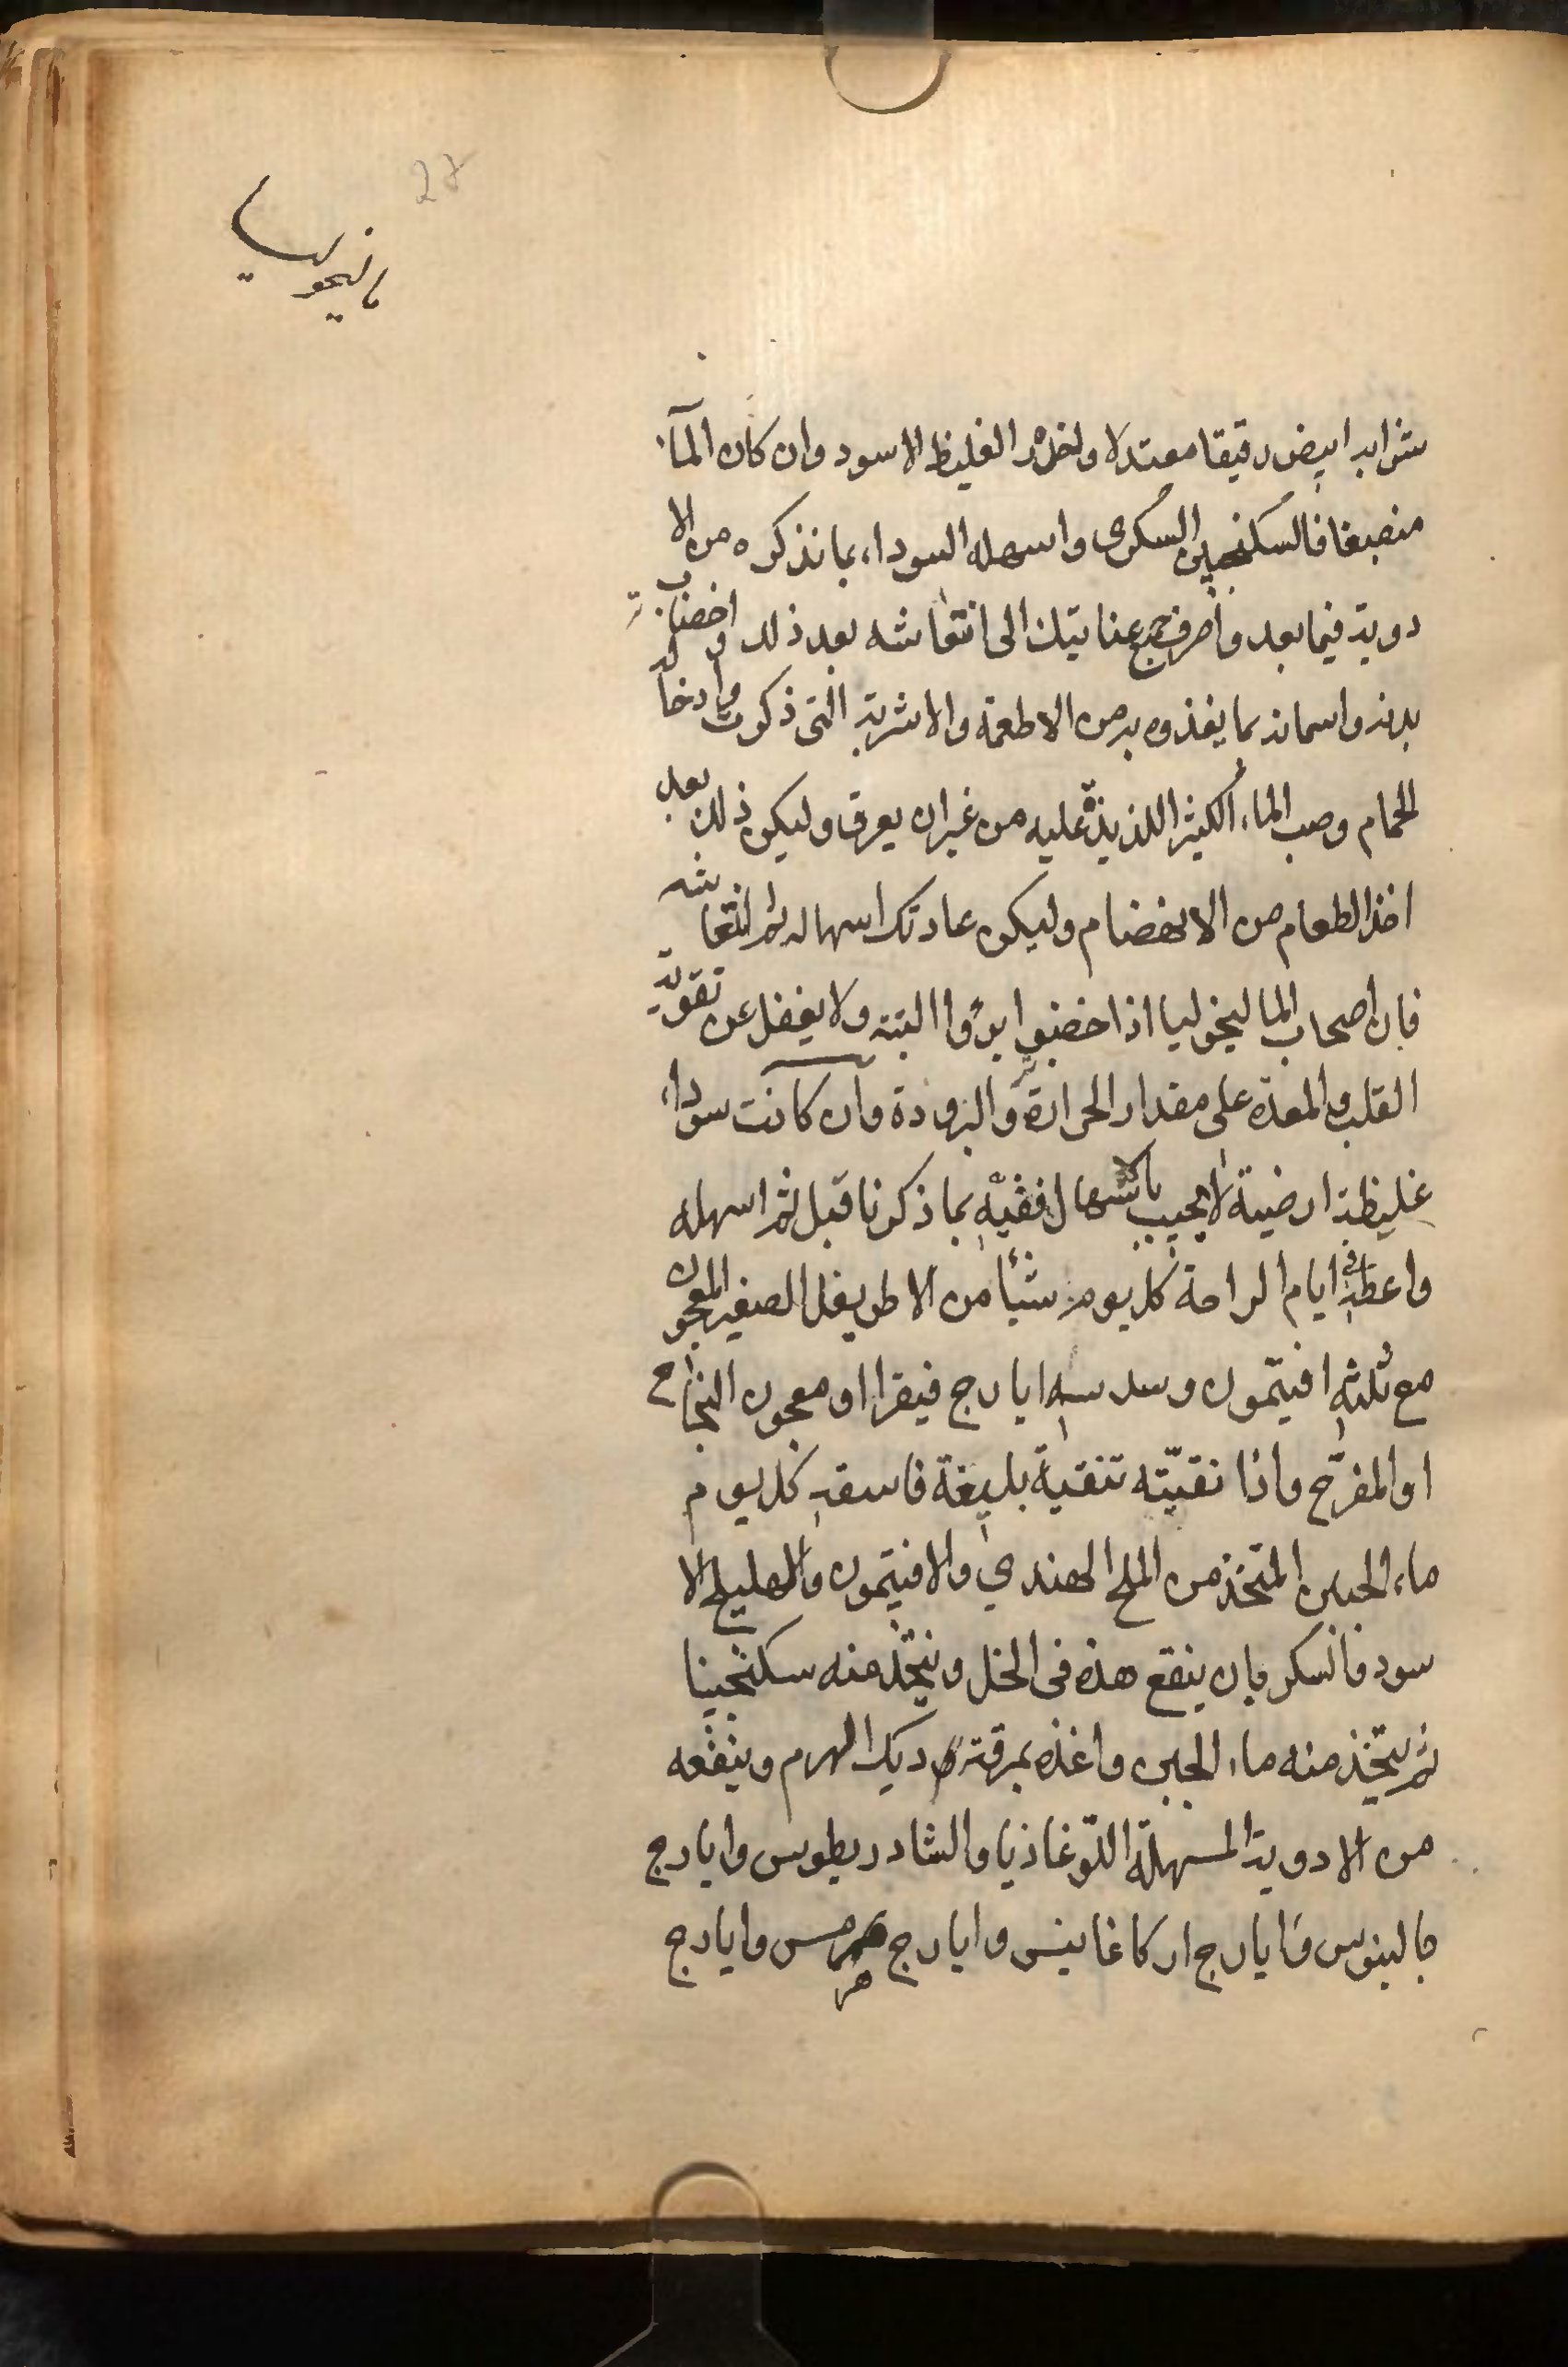 27
مانيخوليا
شرابه ابيض رقيقا معتدلا وليحذر الغليظ الاسود وان كان الماء
منصبغا فالسكنجبين السكرى واسهله السوداء بما نذكره من الا
دوية فيما بعد واصرف جميع عنايتك الى انتعاشه بعد ذلك واخضاب
بدنه واسمانه بما يغذوه به من الاطعمة والاشربة التى ذكرت وادخاله
الحمام وصب الماء الكثير اللذيذة عليه من غير ان يعرق وليكن ذلك بعد
اخذ الطعام من الانهضام وليكن عادتك اسهاله ثم انتعاشه
فان اصحاب الماليخوليا اذا خضبوا برؤا البتة ولا يغفل عن تقوية
القلب والمعدة على مقدار الحرارة والبرودة وان كانت سوداء
غليظة ارضية لا يجيب بالاسهال فقيّه بما ذكرنا قبل ثم اسهله
واعطه فى ايام الراحة كل يوم شيئا من الاطريفل الصغير المعجون
مع ثلثه افيتمون وسدسه ايارج فيقرا او معجون النجاح
او المفرّح واذا نقيّته تنقية بليغة فاسقه كل يوم
ماء الجبن المتخذ من الملح الهندي والافيتمون والهليلج الا
سود فالسكر بان ينقع هذه فى الخل ويتخذ منه سكنجبينا
ثم يتخذ منه ماء الجبن واغذه بمرقة ديك الهرم وينفعه
من الادوية المسهلة اللوغاذيا والشادريطوس وايارج
جالينوس وايارج اركاغانيس وايارج هرمس وايارج